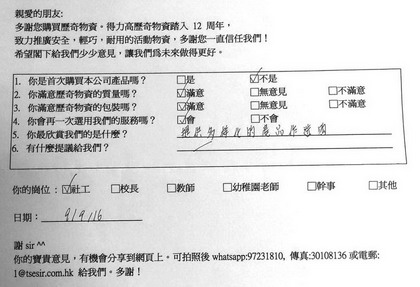 親愛的朋友:
多謝您購買歷奇物資。得力高歷奇物資踏入 12 周年,
致力推廣安全,輕巧,耐用的活動物資,多謝您一直信任我們!
希望閣下給我們少少意見,讓我們為未來做得更好。
1. 你是首次購買本公司產品嗎? □是 ☑不是
2. 你滿意歷奇物資的質量嗎? ☑滿意 □無意見 □不滿意
3. 你滿意歷奇物資的包裝嗎? ☑滿意 □無意見 □不滿意
4. 你會再一次選用我們的服務嗎? ☑會 □不會
5. 你最欣賞我們的是什麼? 提供多樣化的產品
6. 有什麼提議給我們?
你的崗位: ☑社工 □校長 □教師 □幼稚園老師 □幹事 □其他
日期: 9/9/16
謝 sir ^^
你的寶貴意見,有機會分享到網頁上。可拍照後 whatsapp:97231810, 傳真:30108136 或電郵:
1@tsesir.com.hk 給我們。多謝!